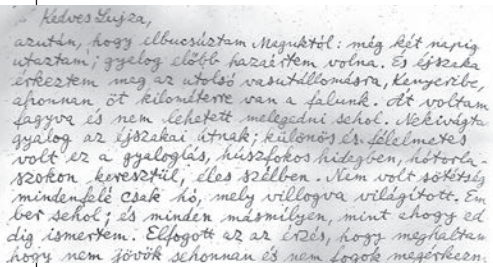 Kedves Lujza,
azután, hogy elbucsúztam Maguktól: még két napig
utaztam; gyalog előbb hazaértem volna. És éjszaka
érkeztem meg az utolsó vasutállomásra, Kenyeribe,
ahonnan öt kilométerre van a falunk. Át voltam
fagyva és nem lehetett melegedni sehol. Nekivágta
gyalog az éjszakai útnak; különös és félelmetes
volt ez a gyaloglás, húszfokos hidegben, hótorla-
szokon keresztül, éles szélben. Nem volt sötétség
mindenfelé csak hó, mely villogva világított. Em
ber sehol; és minden másmilyen, mint ahogy ed
dig ismertem. Elfogott az az érzés, hogy meghaltam
hogy nem jövök sehonnan és nem fogok megérkezn